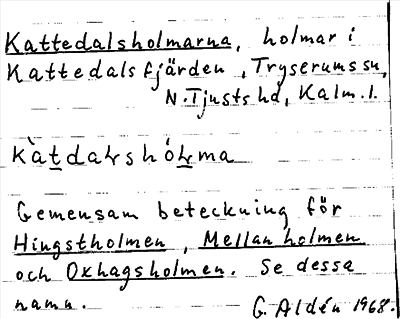 Kattedalsholmarna, holmar i
Kattedalsfjärden, Tryserums sn,
N. Tjusts hd, Kalm. l.
kàtdaɫshóɫma
Gemensam beteckning för
Hingstholmen, Mellanholmen
och Oxhagsholmen. Se dessa
namn.
G. Aldén 1968.